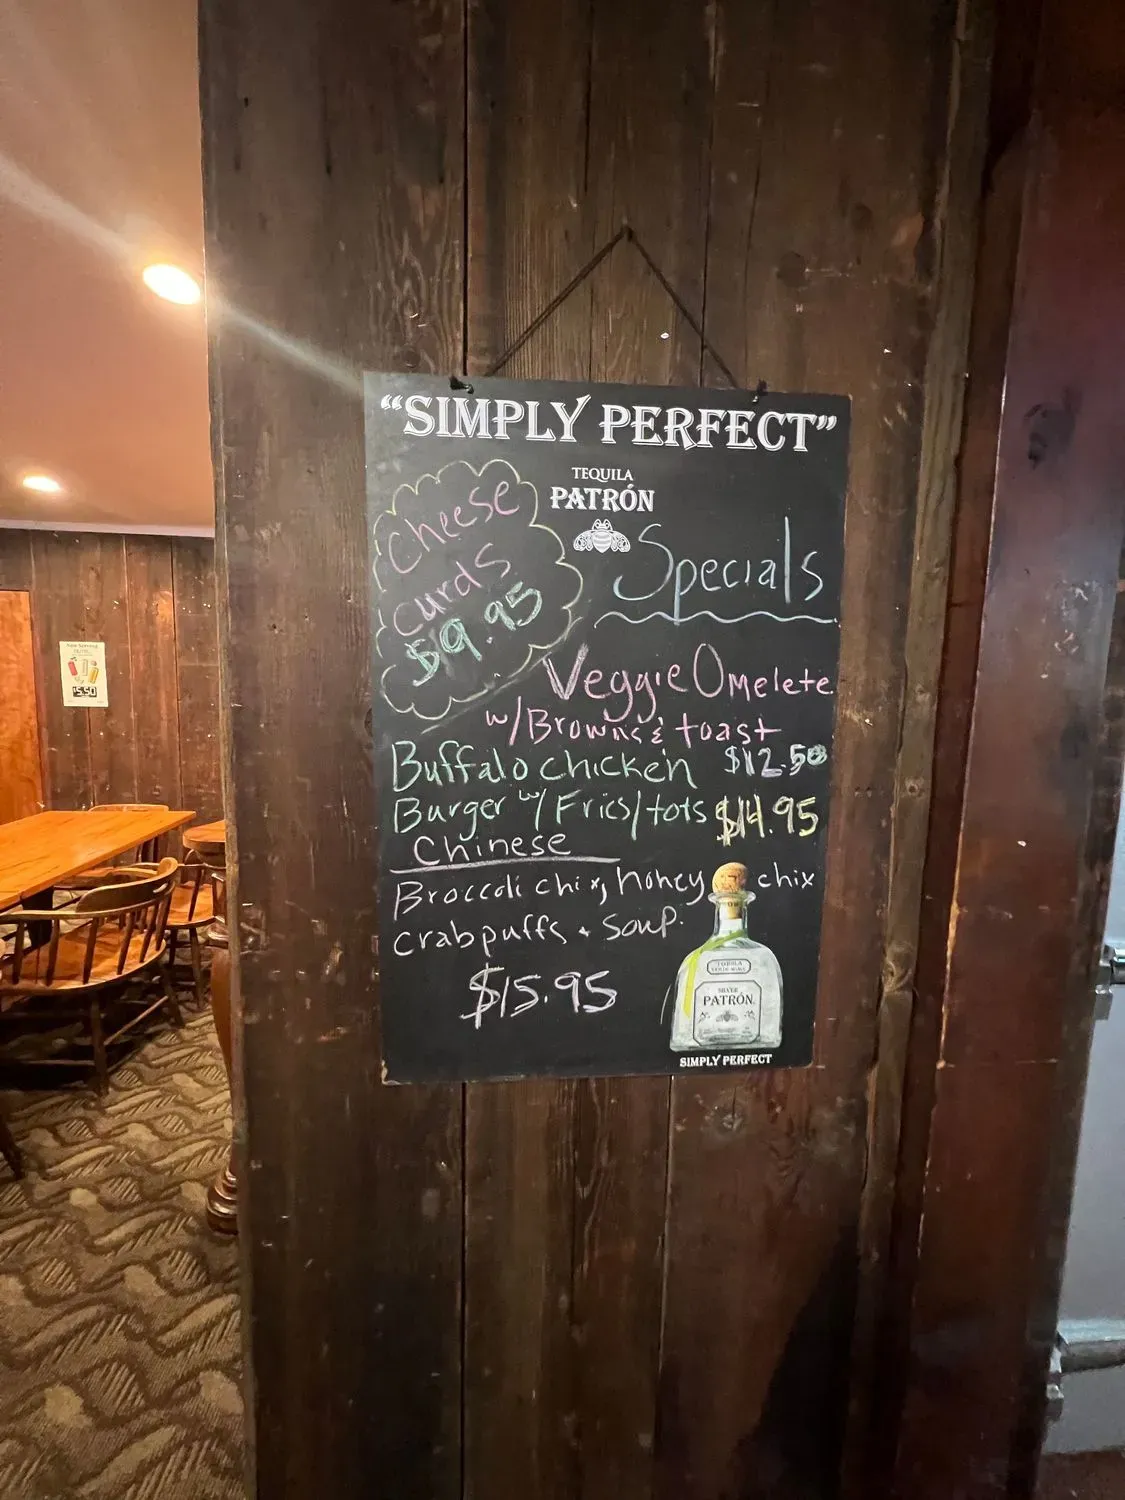 "SIMPLY PERFECT"
TEQUILA
PATRÓN
Cheese
curds
$9.95
Specials
Veggie Omelete
w/Browns & toast
$12.50
Buffalo chicken
Burger w/ Fries/tots $14.95
Chinese
Broccoli chix, honey chix
crab puffs + soup
$15.95
SILVER
PATRÓN
SIMPLY PERFECT